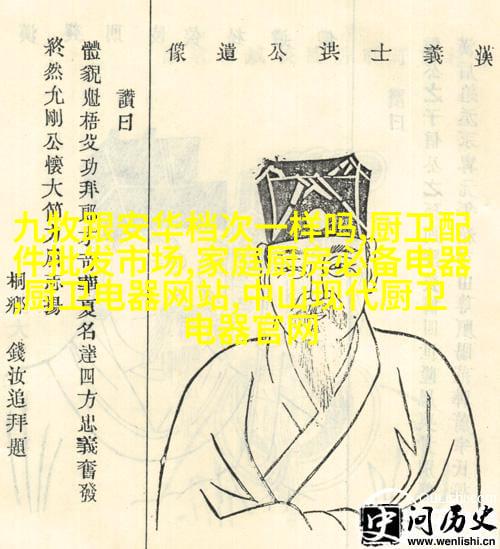 漢義士洪公遺像
讚曰
體貌魁梧
終然允剛公懷大節
華夏名達四方忠義奮發
桐鄉 錢汝追拜題
九牧跟安华档次一样吗,厨卫配
件批发市场,家庭厨房必备电器
,厨卫电器网站,中山现代厨卫
电器官网
史问历史
www.wenlishi.cn